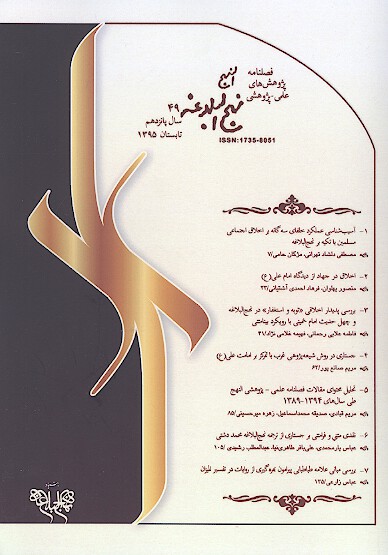 فصلنامه
پژوهش‌های
علمی-پژوهشی
النهج
نهج البلاغه
۴۹
سال پانزدهم
تابستان ۱۳۹۵
ISSN:1735-8051
۱- آسیب‌شناسی عملکرد خلفای سه‌گانه بر اخلاق اجتماعی
مسلمین با تکیه بر نهج‌البلاغه
مصطفی دلشاد تهرانی، مژگان حامی/۷
۲- اخلاق در جهاد از دیدگاه امام علی(ع)
منصور پهلوان، فرهاد احمدی آشتیانی/۲۳
۳- بررسی پدیدار اخلاقی «توبه و استغفار» در نهج‌البلاغه
و چهل حدیث امام خمینی با رویکرد بینامتنی
فاطمه علایی رحمانی، فهیمه غلامی نژاد/۴۱
۴- جستاری در روش شیعه‌پژوهی غرب با تمرکز بر امامت علی(ع)
مریم صانع پور/۶۳
۵- تحلیل محتوای مقالات فصلنامه علمی - پژوهشی النهج
طی سال‌های ۱۳۹۴-۱۳۸۹
مریم قبادی، صدیقه محمداسماعیل، زهره میرحسینی/۸۵
۶- نقدی متنی و فرامتنی بر جستاری از ترجمه نهج‌البلاغه محمد دشتی
عباس یارمحمدی، علی‌باقر طاهری‌نیا، عبدالمطلب رشیدی/۱۰۵
۷- بررسی مبانی علامه طباطبایی پیرامون بهره‌گیری از روایات در تفسیر المیزان
عباس زارعی/۱۲۵